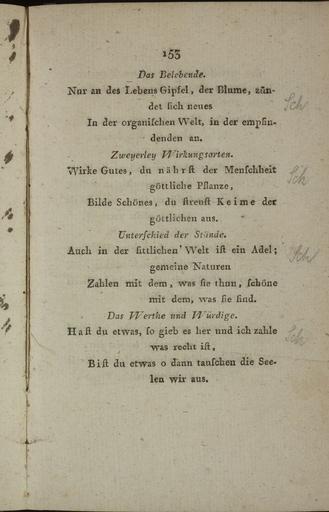 155
Das Belebende.
Nur an des Lebens Gipfel, der Blume, zün-
det ſich neues
In der organiſchen Welt, in der empfin-
denden an.
Sch
Zweyerley Wirkungsarten.
Wirke Gutes, du nährſt der Menſchheit
göttliche Pflanze,
Sch
Bilde Schönes, du ſtreuſt Keime der
göttlichen aus.
Unterſchied der Stände.
Auch in der ſittlichen Welt iſt ein Adel;
gemeine Naturen
Sch
Zahlen mit dem, was ſie thun, ſchöne
mit dem, was ſie ſind.
Das Werthe und Würdige.
Haſt du etwas, ſo gieb es her und ich zahle
was recht iſt,
Sch
Biſt du etwas o dann tauſchen die See-
len wir aus.